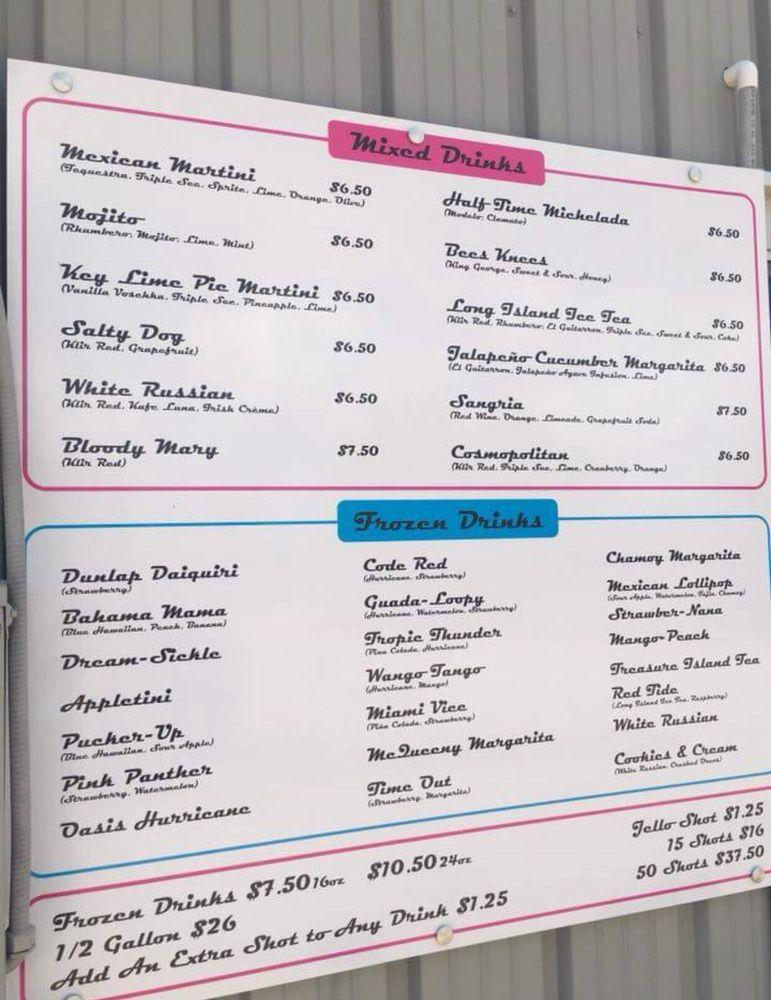 Mixed Drinks
Mexican Martini $6.50
(Tequestra, Triple Sec, Sprite, Lime, Orange, Olive)
Mojito $6.50
(Rhumbero, Mojito, Lime, Mint)
Key Lime Pie Martini $6.50
(Vanilla Voschka, Triple Sec, Pineapple, Lime)
Salty Dog $6.50
(Klir Red, Grapefruit)
White Russian $6.50
(Klir Red, Kafe Luna, Irish Crème)
Bloody Mary $7.50
(Klir Red)
Half-Time Michelada $6.50
(Modelo, Clamato)
Bees Knees $6.50
(King George, Sweet & Sour, Honey)
Long Island Ice Tea $6.50
(Klir Red, Rhumbero, El Guitarron, Triple Sec, Sweet & Sour, Coke)
Jalapeño Cucumber Margarita $6.50
(El Guitarron, Jalapeño Agave Infusion, Lime)
Sangria $7.50
(Red Wine, Orange, Limeade, Grapefruit Soda)
Cosmopolitan $6.50
(Klir Red, Triple Sec, Lime, Cranberry, Orange)
Frozen Drinks
Dunlap Daiquiri
(Strawberry)
Bahama Mama
(Blue Hawaiian, Peach, Banana)
Dream-Sickle
Appletini
Pucker-Up
(Blue Hawaiian, Sour Apple)
Pink Panther
(Strawberry, Watermelon)
Oasis Hurricane
Code Red
(Hurricane, Strawberry)
Guada-Loopy
(Hurricane, Watermelon, Strawberry)
Tropic Thunder
(Pina Colada, Hurricane)
Wango-Tango
(Hurricane, Mango)
Miami Vice
(Piña Colada, Strawberry)
McQueeny Margarita
Time Out
(Strawberry, Margarita)
Chamoy Margarita
Mexican Lollipop
(Sour Apple, Watermelon, Tajin, Chamoy)
Strawber-Nana
Mango-Peach
Treasure Island Tea
Red Tide
(Long Island Ice Tea, Raspberry)
White Russian
Cookies & Cream
(White Russian, Crushed Oreos)
Frozen Drinks $7.50 16oz $10.50 24oz
1/2 Gallon $26
Add An Extra Shot to Any Drink $1.25
Jello Shot $1.25
15 Shots $16
50 Shots $37.50